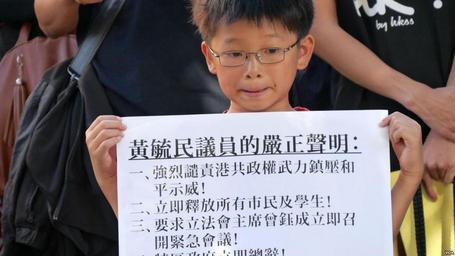 by hkss
黃毓民議員的嚴正聲明：
一、強烈譴責港共政權武力鎮壓和
平示威!
二、立即釋放所有市民及學生!
三、要求立法會主席曾鈺成立即召
開緊急會議!
特區政府立即總辭!